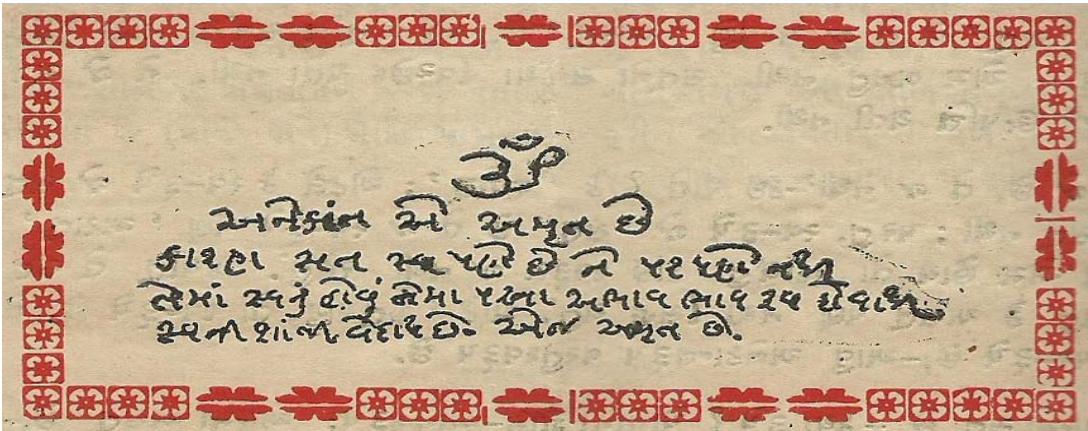 ૐ
અનેકાંત એ અમૃત છે
કારણ સત સ્વ પણે છે ને પર પણે નથી
તેમાં સ્વનું હોવું તેમા પરના અભાવ ભાવ રૂપ હોવાથી
સ્વની શાંતી વેદાય છે. એજ અમૃત છે.